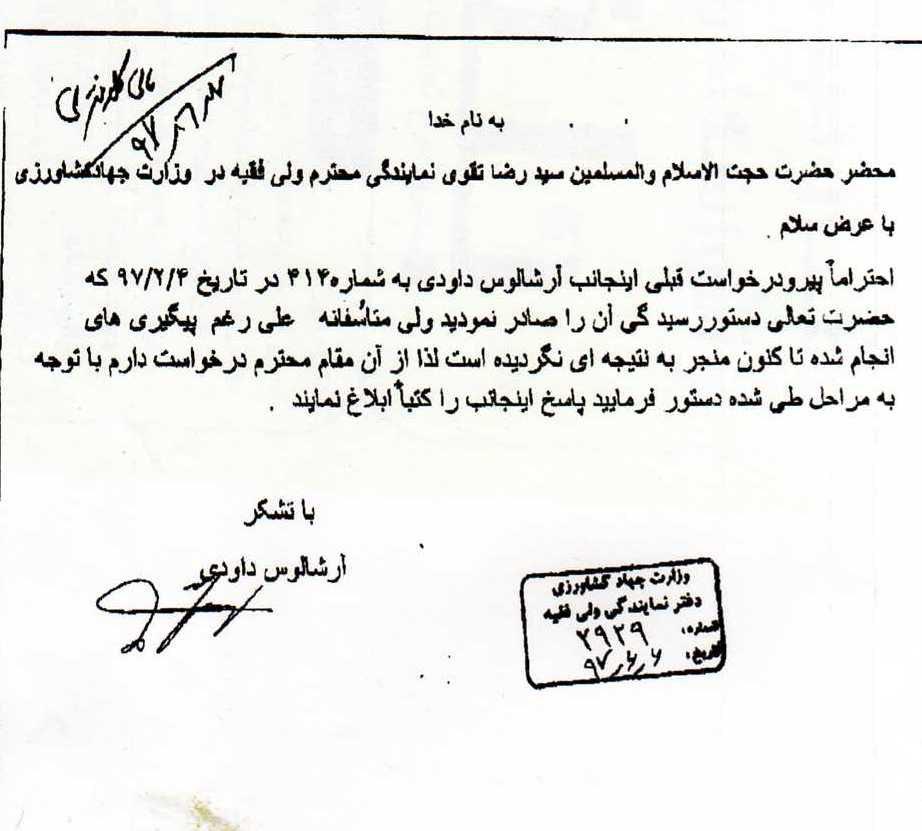 به نام خدا
محضر حضرت حجت الاسلام والمسلمین سید رضا تقوی نمایندگی محترم ولی فقیه در وزارت جهادکشاورزی
با عرض سلام .
احتراماً پیرودرخواست قبلی اینجانب آرشالوس داودی به شماره۴۱۴ در تاریخ ۹۷/۲/۴ که
حضرت تعالی دستوررسید گی آن را صادر نمودید ولی متأسفانه علی رغم پیگیری های
انجام شده تا کنون منجر به نتیجه ای نگردیده است لذا از آن مقام محترم درخواست دارم با توجه
به مراحل طی شده دستور فرمایید پاسخ اینجانب را کتباً ابلاغ نمایند .
با تشکر
آرشالوس داودی
وزارت جهاد کشاورزی
دفتر نمایندگی ولی فقیه
شماره: ۲۹۲۹
تاریخ: ۹۷